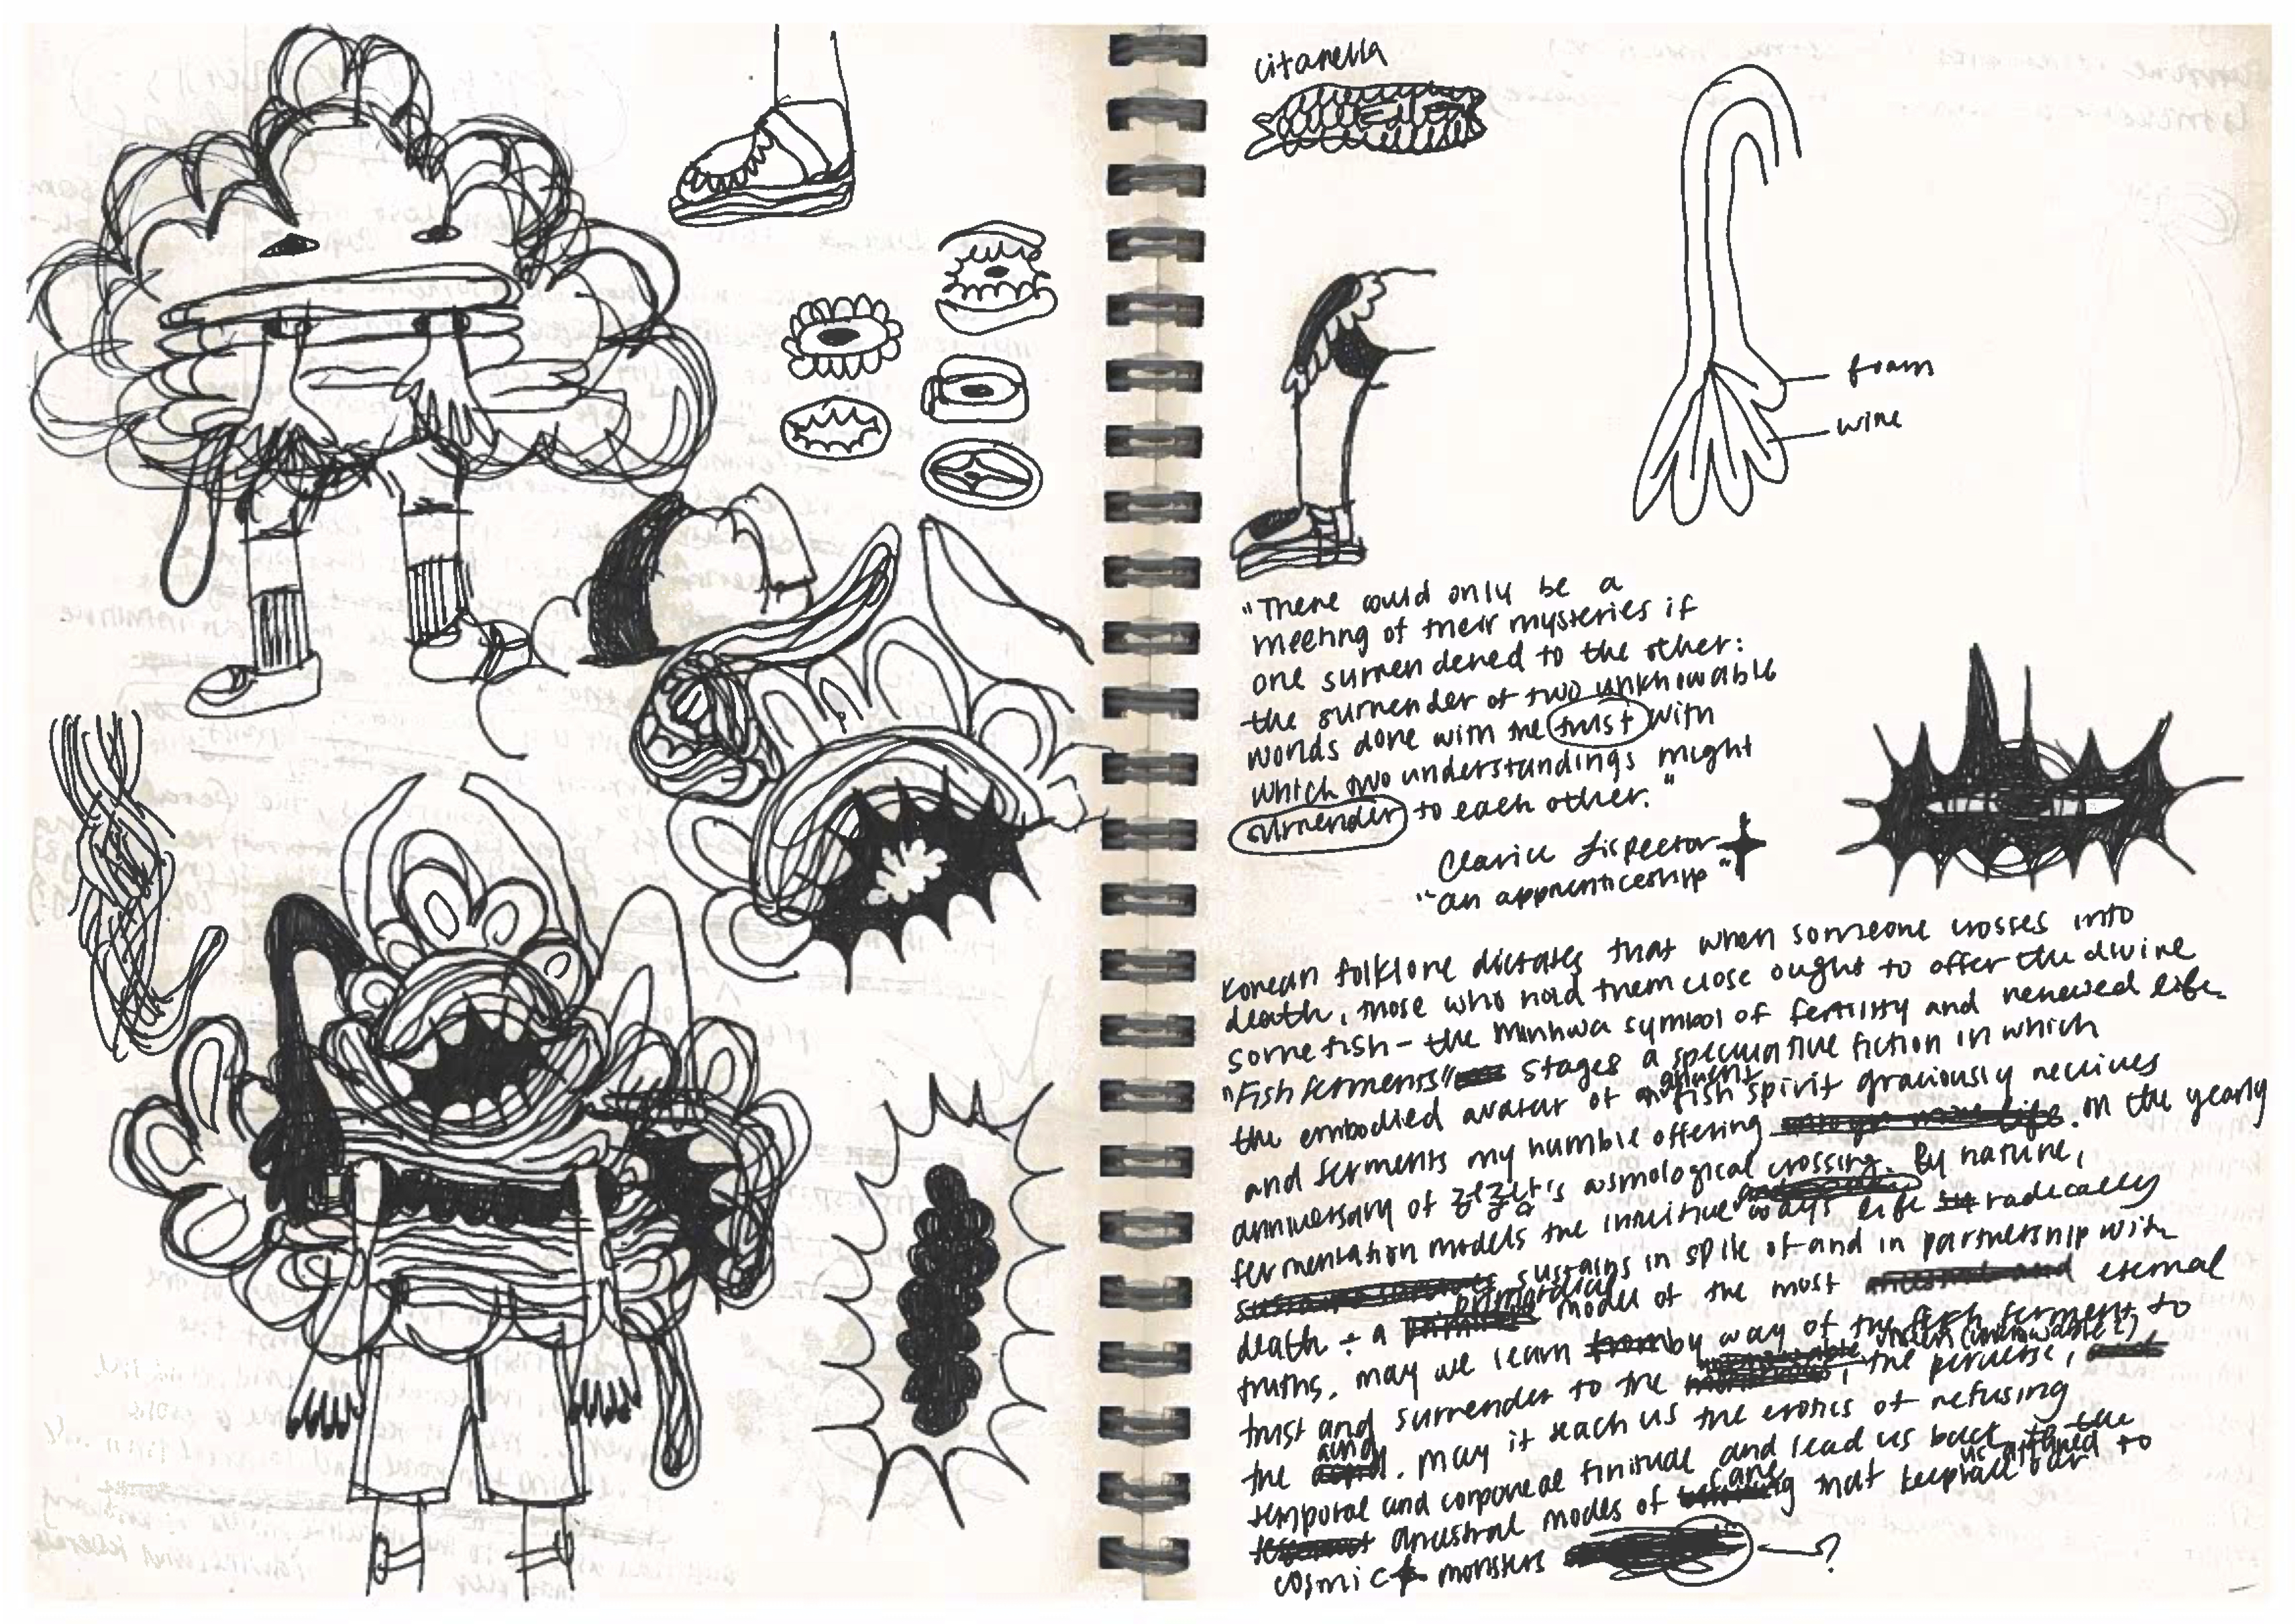 citanella
foam
wire
"There could only be a
meeting of their mysteries if
one surrendered to the other:
the surrender of two unknowable
worlds done with the trust with
which two understandings might
surrender to each other."
Clarice Lispector
"an apprenticeship"
Korean folklore dictates that when someone crosses into
death, those who hold them close ought to offer the divine
some fish - the Minhwa symbol of fertility and renewed life.
"Fish ferments" stages a speculative fiction in which
the embodied avatar of an ancient fish spirit graciously receives
and ferments my humble offering. On the yearly
anniversary of 's cosmological crossing. By nature,
fermentation models the intuitive ways life radically
sustains in spite of and in partnership with
death - a primordial model of the most eternal
truths. may we learn by way of the fish ferment to
trust and surrender to the unseen (unknowable?), the perverse,
the and. may it teach us the erotics of refusing
temporal and corporeal finitude and lead us back to the
ancestral modes of care that keep us attuned to our
cosmic monsters ?